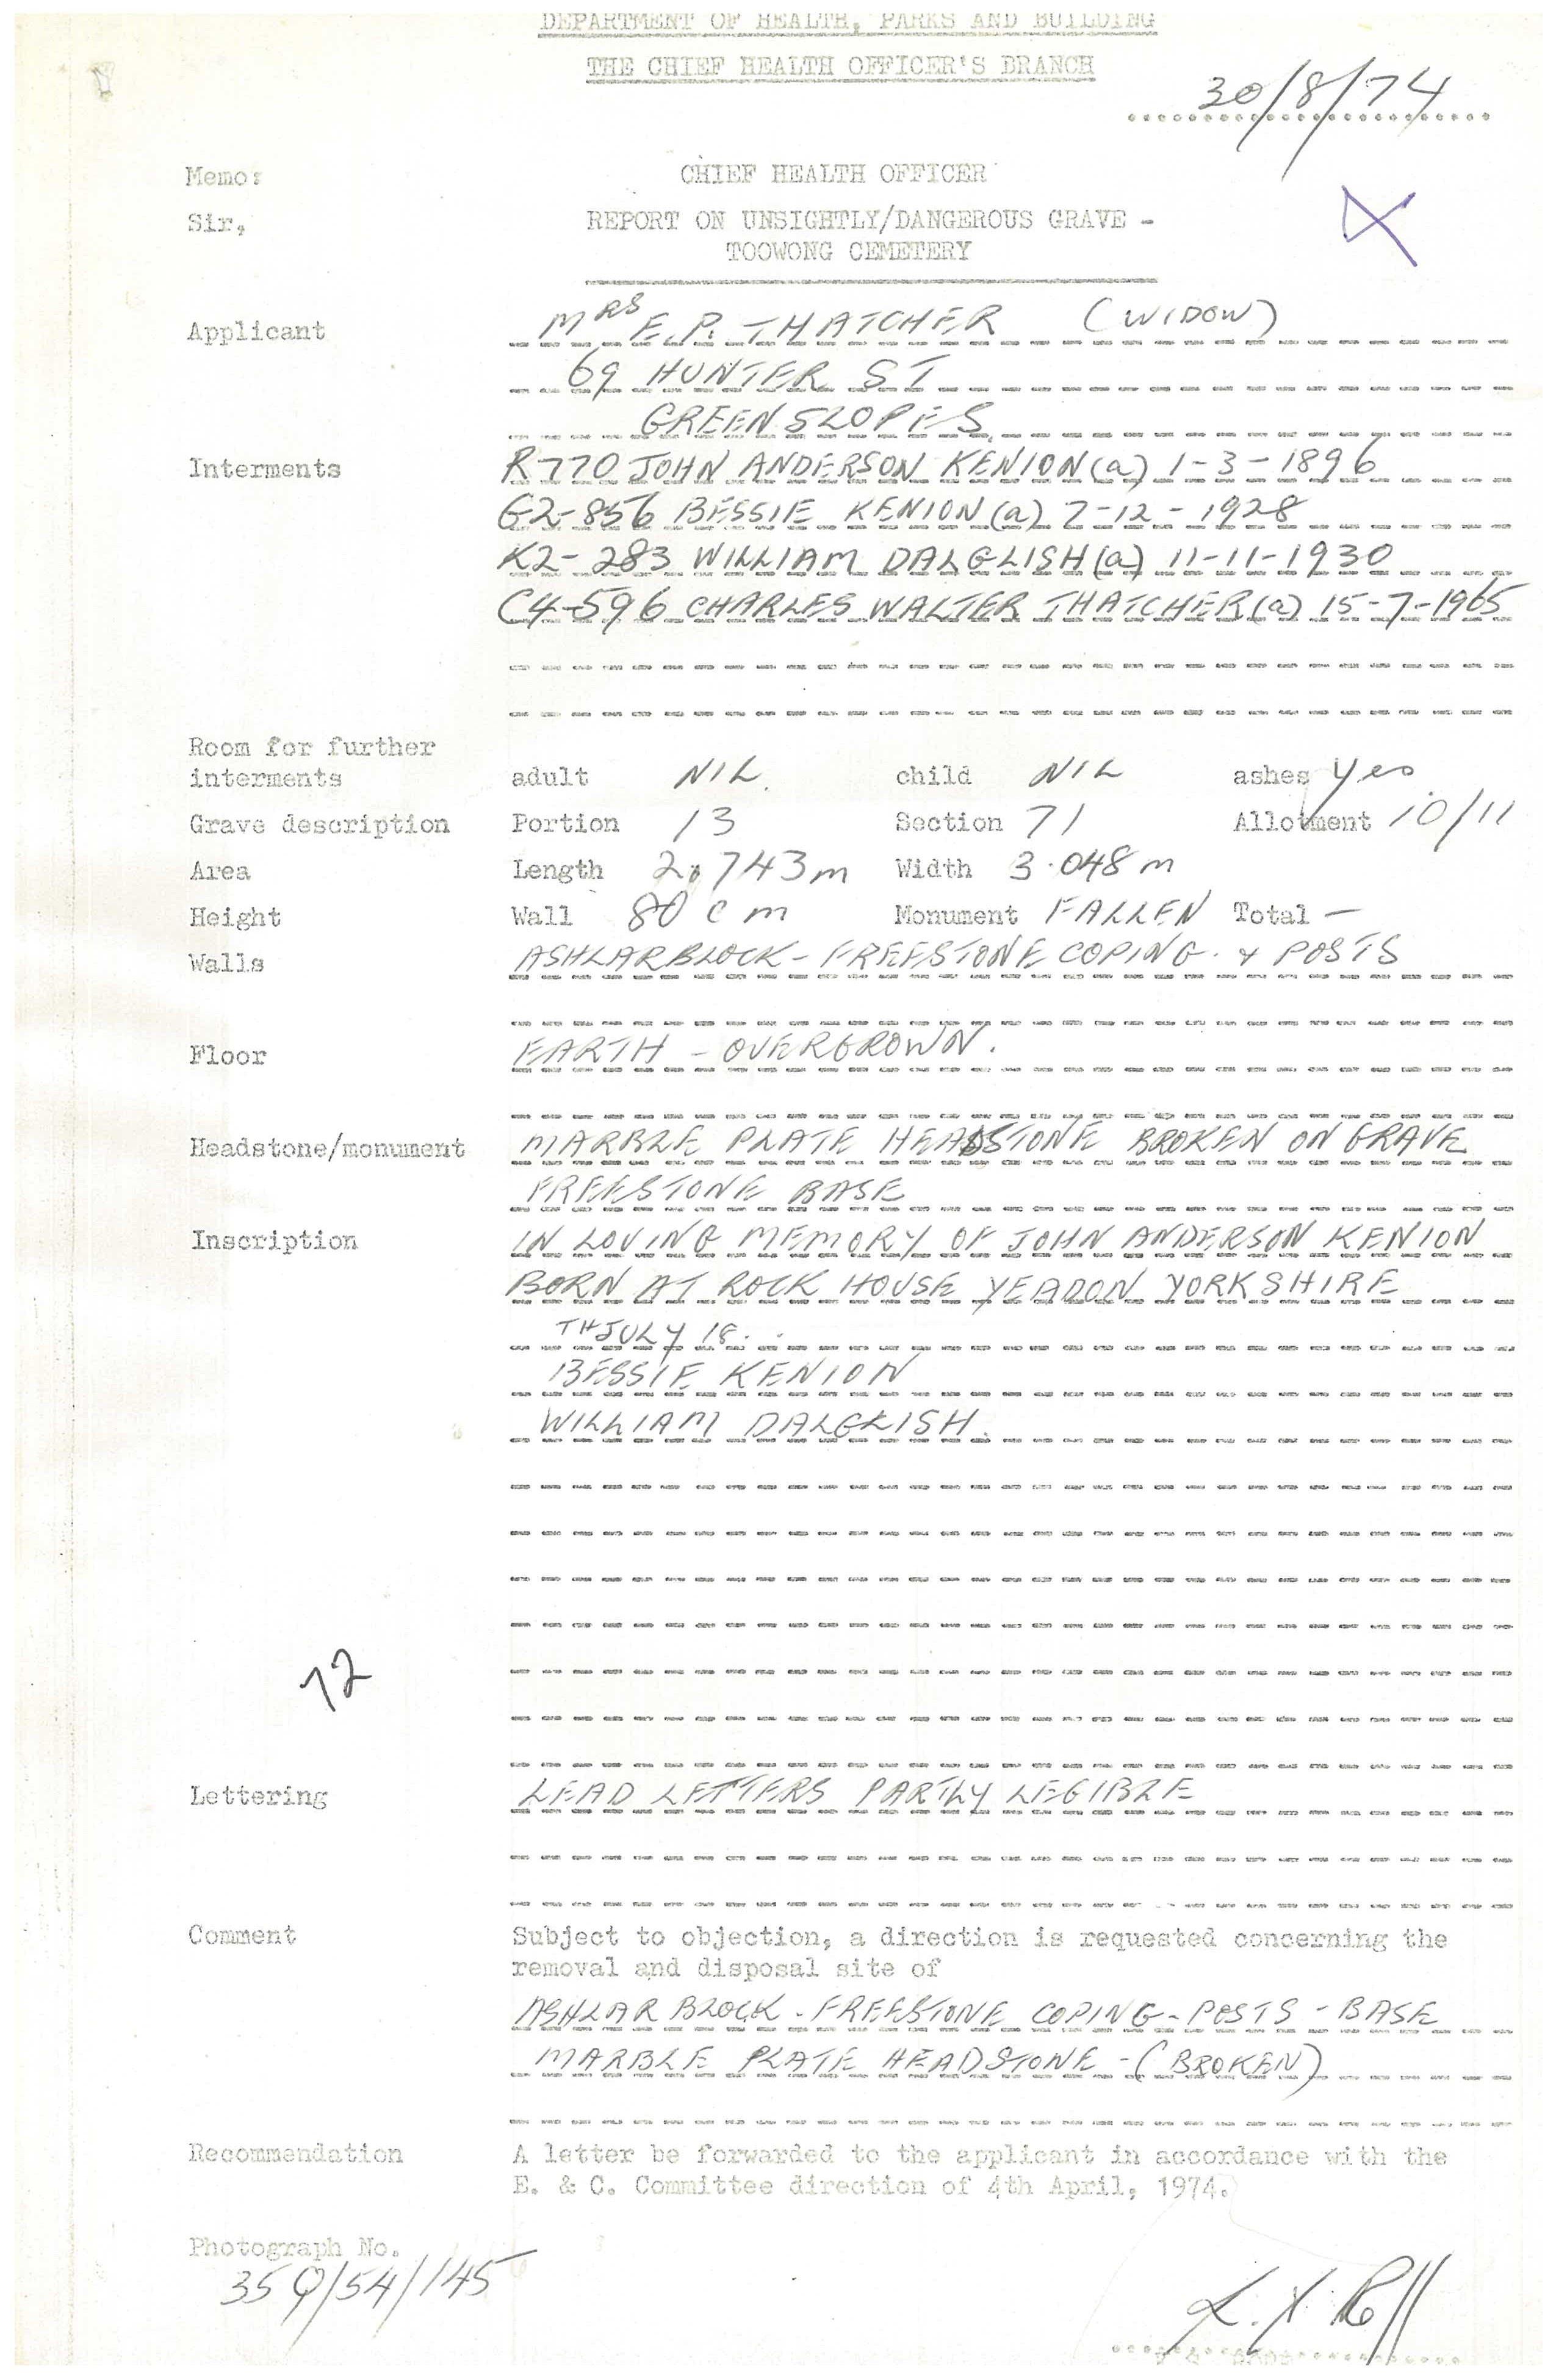 DEPARTMENT OF HEALTH, PARKS AND BUILDING
THE CHIEF HEALTH OFFICER'S BRANCH
30/8/74
Memo: CHIEF HEALTH OFFICER
Sir, REPORT ON UNSIGHTLY/DANGEROUS GRAVE -
TOOWONG CEMETERY
Applicant MRS E.P. THATCHER (WIDOW)
69 HUNTER ST
GREENSLOPES
Interments R770 JOHN ANDERSON KENION (a) 1-3-1896
G2-856 BESSIE KENION (a) 7-12-1928
K2-283 WILLIAM DALGLISH (a) 11-11-1930
C4-596 CHARLES WALTER THATCHER (a) 15-7-1965
Room for further
interments adult NIL. child NIL ashes yes
Grave description Portion 13 Section 71 Allotment 10/11
Area Length 2.743m Width 3.048m
Height Wall 80 cm Monument FALLEN Total -
Walls ASHLAR BLOCK - FREESTONE COPING. & POSTS
Floor EARTH - OVERGROWN.
Headstone/monument MARBLE PLATE HEADSTONE BROKEN ON GRAVE
FREESTONE BASE
Inscription IN LOVING MEMORY OF JOHN ANDERSON KENION
BORN AT ROCK HOUSE YEADON YORKSHIRE
TH JULY 18. .
BESSIE KENION
WILLIAM DALGLISH.
72
Lettering LEAD LETTERS PARTLY LEGIBLE
Comment Subject to objection, a direction is requested concerning the
removal and disposal site of
ASHLAR BLOCK - FREESTONE COPING - POSTS - BASE
MARBLE PLATE HEADSTONE - (BROKEN)
Recommendation A letter be forwarded to the applicant in accordance with the
E. & C. Committee direction of 4th April, 1974.
Photograph No.
35Q/54/145